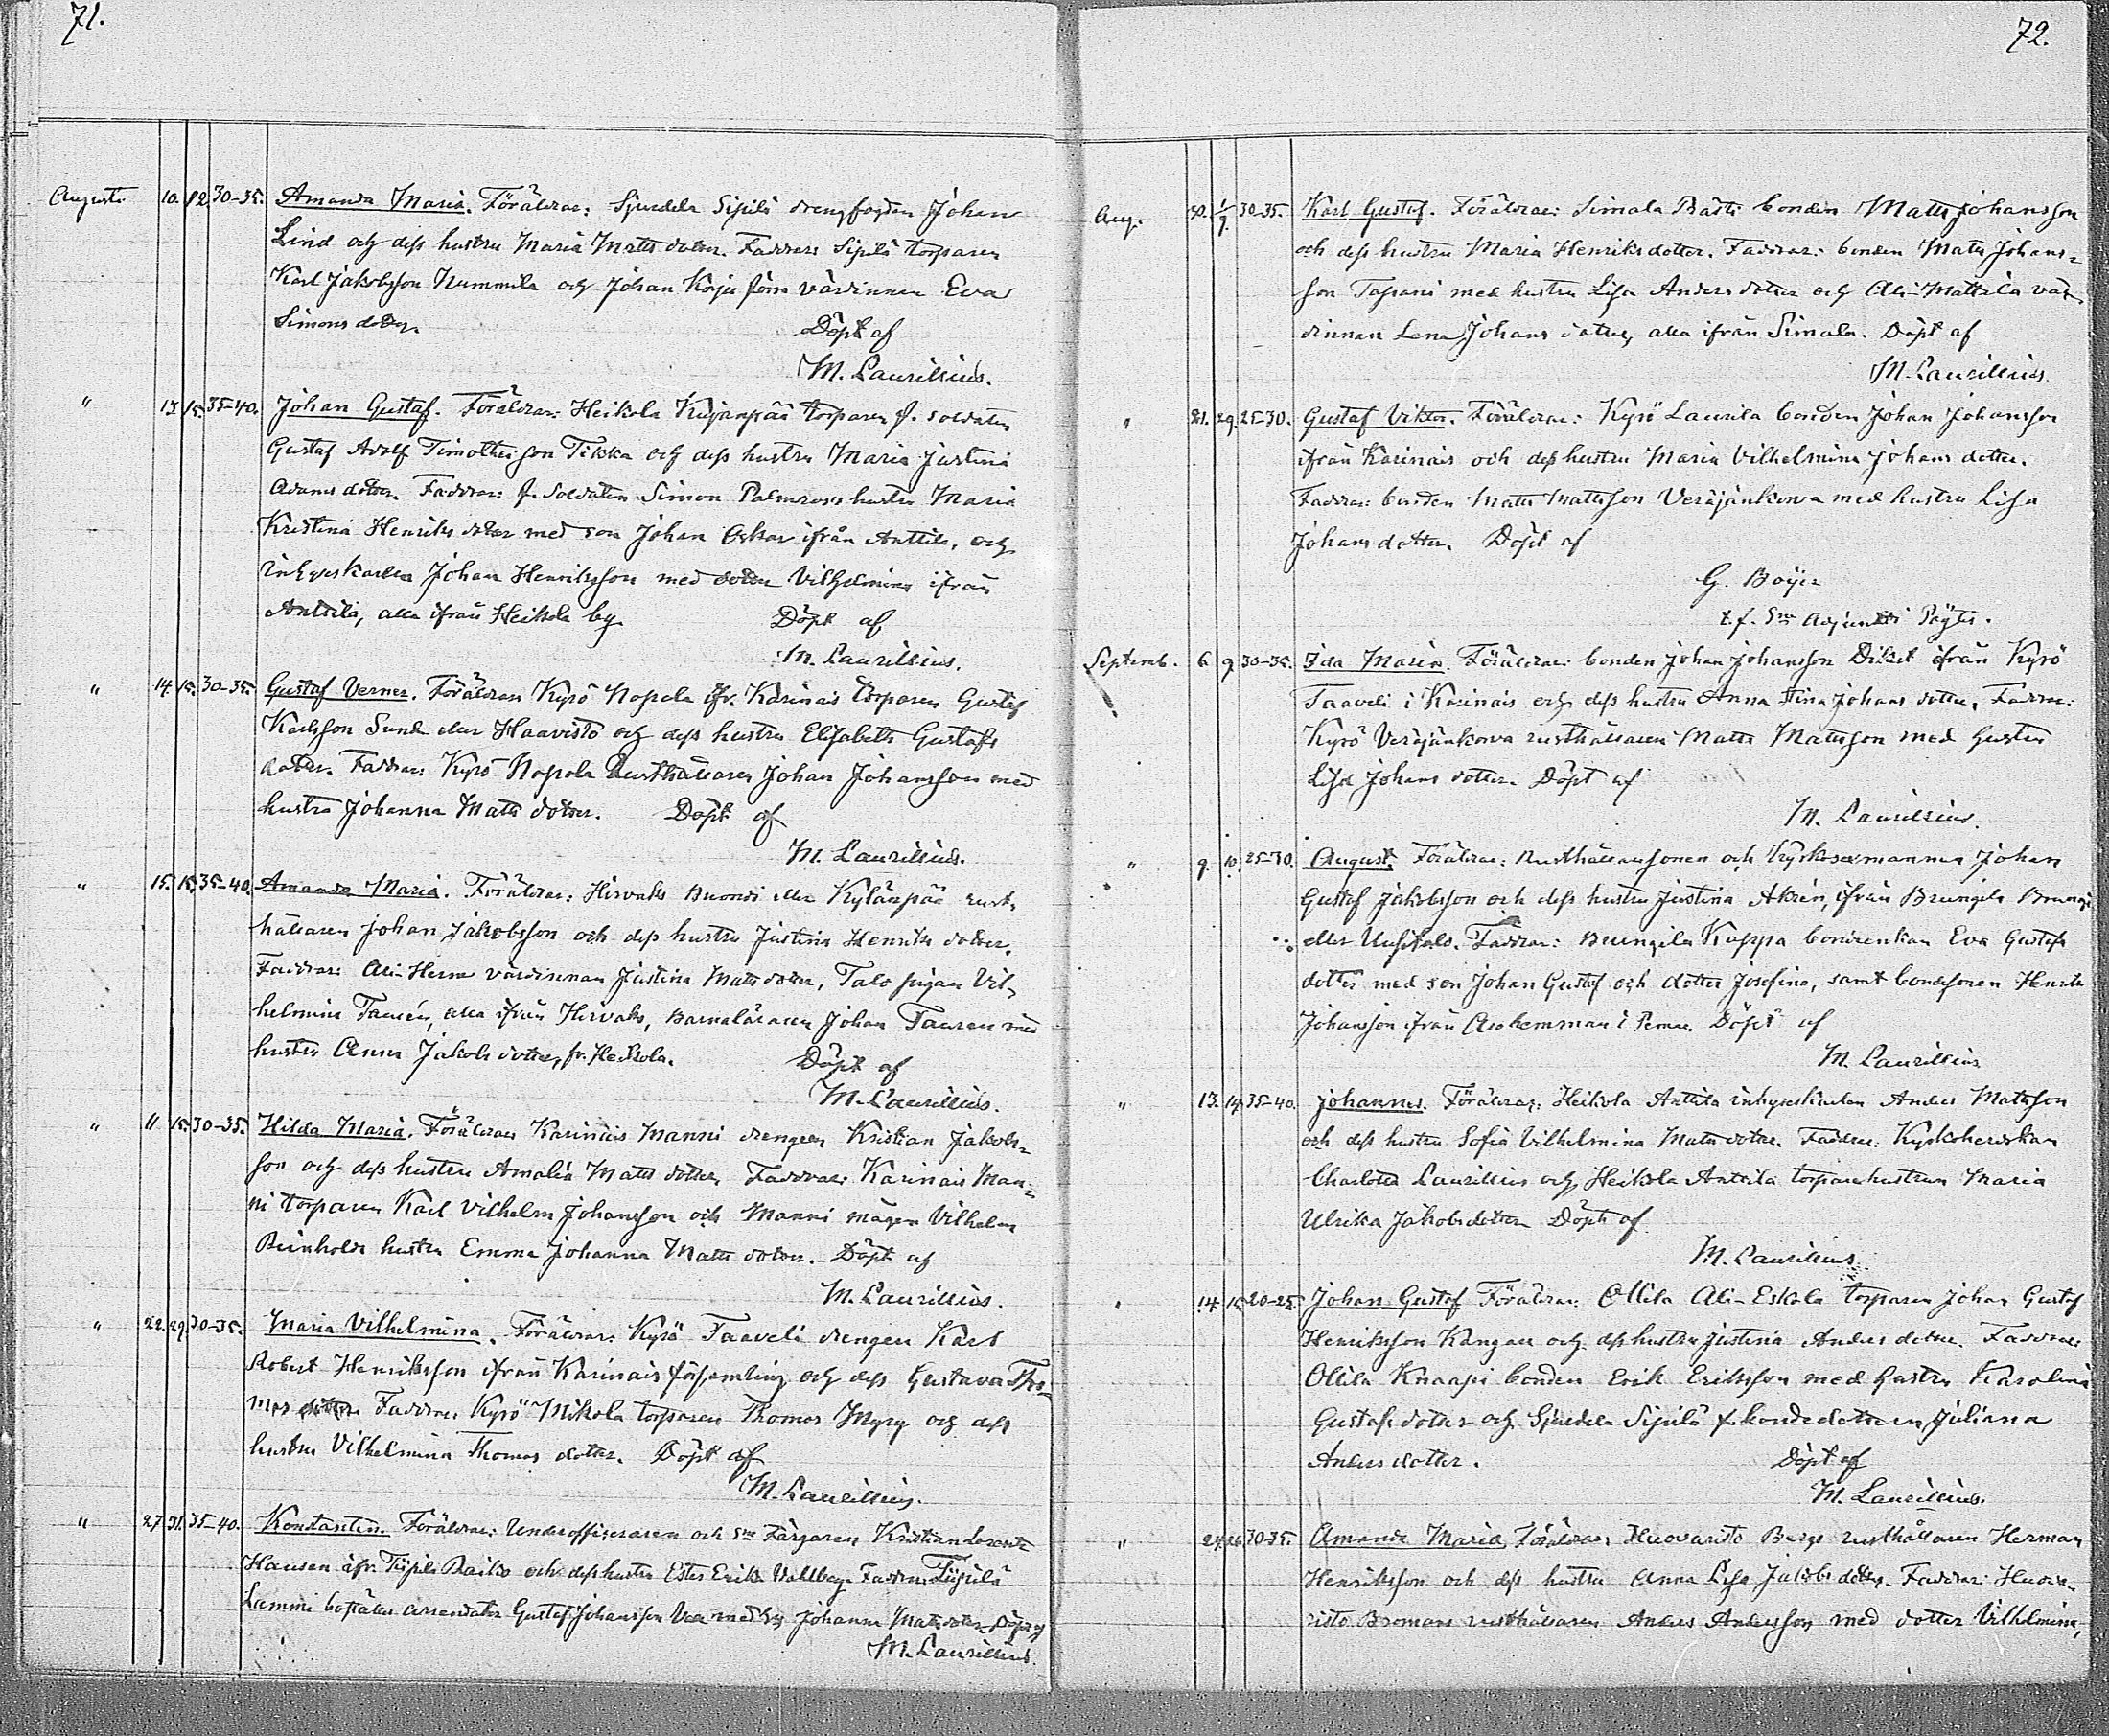 71.
Augusti 10. 12. 30-35. Amanda Maria. Föräldrar: Sjundela Sipilä drengfogden Johan
Lind och dess hustru Maria Matts dotter. Faddrar: Sipilä torparen
Karl Jakobsson Nummila och Johan värdinnan Eva
Simons dotter. Döpt af
M. Laurellius.
" 13. 15. 35-40. Johan Gustaf. Föräldrar: Heikola Kujanpää torparen f. soldaten
Gustaf Adolf Timotheisson Tikka och dess hustru Maria Justina
Adams dotter. Faddrar: f. soldaten Simon Palmroos hustru Maria
Kristina Henriks dotter med son Johan Oskar ifrån Anttila, och
inhyseskarlen Johan Henriksson med dotter Vilhelmina ifrån
Anttila, alla ifrån Heikola by. Döpt af
M. Laurellius.
" 14. 15. 30-35. Gustaf Verner. Föräldrar Kyrö Nopola ifr. Karinais torparen Gustaf
Karlsson Sund eller Haavisto och dess hustru Elisabeth Gustafs
dotter. Faddrar: Kyrö Nopola Rusthållaren Johan Johansson med
hustru Johanna Matts dotter. Döpt af
M. Laurellius.
" 15. 15. 35-40. Amanda Maria. Föräldrar: Hirvaks eller Kylänpää rust-
hållaren Johan Jakobsson och dess hustru Justina Henriks dotter.
Faddrar: Ali-Herra värdinnan Justina Matts dotter, Talo pigan Vil-
helmina Taurén, alla ifrån Hirvaks, Barnaläraren Johan Tauren med
hustru Anna Jakobs dotter, fr. Heikola. Döpt af
M. Laurellius.
" 11 15. 30-35. Hilda Maria. Föräldrar Karinais Manni drengen Kristian Jakobs-
son och dess hustru Amalia Matts dotter. Faddrar: Karinais Man-
ni torparen Karl Vilhelm Johansson och Manni mågen Vilhelm
Reinholds hustru Emma Johanna Matts dotter. Döpt af
M. Laurellius.
" 22. 29. 30-35. Maria Vilhelmina. Föräldrar: Kyrö Taaveli drengen Karl
Robert Henriksson ifrån Karinais församling och dess Gustava Tho-
mas dotter Faddrar: Kyrö Mikola torparen Thomas Myry och dess
hustru Vilhelmina Thomas dotter. Döpt af
M. Laurellius.
" 27 31. 35-40. Konstantin. Föräldrar: Underofficeraren och Färgaren Kristian
Hansen ifr. Raiko och dess hustru Ester Erika Vallberg. Faddrar:
Lammi boställes arrendator Gustaf Johansson med Johanna Matts dotter. Döpt af
M. Laurellius.
72.
Aug. 30. 1/9. 30-35. Karl Gustaf. Föräldrar: Simala bonden Matts Johansson
och dess hustru Maria Henriks dotter. Faddrar: bonden Matts Johans-
son Tapani med hustru Lisa Anders dotter och Ali-Mattila vär-
dinnan Lena Johans dotter, alla ifrån Simala. Döpt af
M. Laurellius.
" 21. 29. 25-30. Gustaf Viktor. Föräldrar: Kyrö Laurila bonden Johan Johansson
ifrån Karinais och dess hustru Maria Vilhelmina Johans dotter.
Faddrar: bonden Matts Mattsson Veräjänkorva med hustru Lisa
Johans dotter. Döpt af
G. Boijer
t.f. Adjunkt i Pöytis.
Septemb. 6. 9. 30-35. Ida Maria. Föräldrar: bonden Johan Johansson ifrån Kyrö
Taaveli i Karinais och dess hustru Anna Stina Johans dotter, Faddrar:
Kyrö Veräjänkorva rusthållaren Matts Mattsson med hustru
Lisa Johans dotter. Döpt af
M. Laurellius.
" 9. 10. 25-30. August. Föräldrar: Rusthållaresonen och Johan
Gustaf Jakobsson och dess hustru Justina ifrån
eller Uusitalo. Faddrar: Kappa bondenkan Eva Gustafs
dotter med son Johan Gustaf och dotter Josefina, samt bondesonen Henrik
Johansson ifrån i Pemar. Döpt af
M. Laurellius
" 13. 14. 35-40. Johannes. Föräldrar: Heikola Anttila inhyseskarlen Anders Mattsson
och dess hustru Sofia Vilhelmina Matts dotter. Faddrar: Kyrkoherdskan
Charlotta Laurellius och Heikola Anttila torparehustrun Maria
Ulrika Jakobsdotter Döpt af
M. Laurellius
" 14. 15. 20-25. Johan Gustaf Föräldrar: Ollila Ali-Eskola torparen Johan Gustaf
Henriksson Kangas och dess hustru Justina Anders dotter. Faddrar:
Ollila Knaapi bonden Erik Eriksson med hustru Karolina
Gustafs dotter och Sjundela Sipilä f. bondedottern Juliana
Anders dotter. Döpt af
M. Laurellius.
" 24. 26. 30-35. Amanda Maria. Föräldrar: Huovaristo rusthållaren Herman
Henriksson och dess hustru Anna Lisa Jakobs dotter. Faddrar: Huova-
risto Bromans rusthållaren Anders Andersson med dotter Vilhelmina,